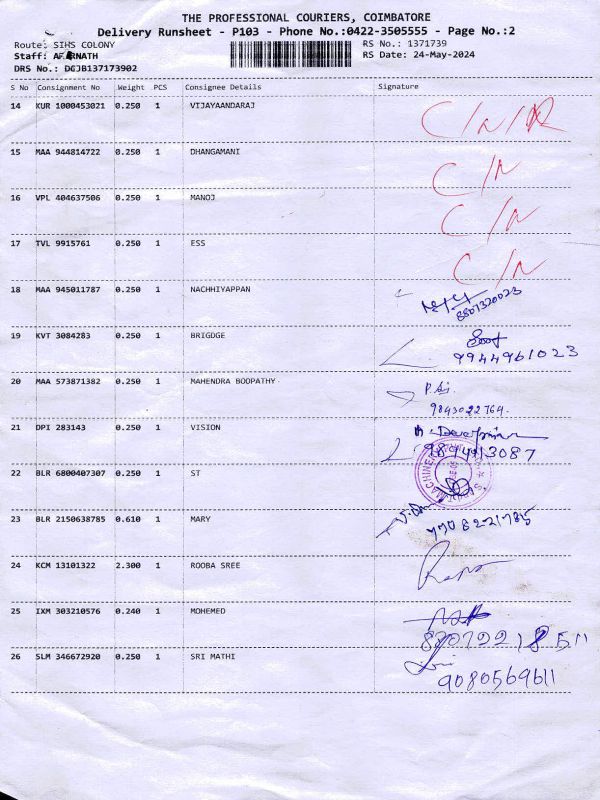 THE PROFESSIONAL COURIERS, COIMBATORE
Delivery Runsheet - P103 - Phone No.:0422-3505555 - Page No.:2
Route: SIHS COLONY RS No.: 1371739
Staff: RS Date: 24-May-2024
DRS No.: DGJB137173902
S No Consignment No Weight PCS Consignee Details Signature
14 KUR 1000453021 0.250 1 VIJAYAANDARAJ C/N/R
15 MAA 944814722 0.250 1 DHANGAMANI C/N
16 VPL 404637506 0.250 1 MANOJ C/N
17 TVL 9915761 0.250 1 ESS C/N
18 MAA 945011787 0.250 1 NACHHIYAPPAN
8807320023
19 KVT 3084283 0.250 1 BRIGDGE
9944961023
20 MAA 573871382 0.250 1 MAHENDRA BOOPATHY
9843022764.
21 DPI 283143 0.250 1 VISION
9894913087
22 BLR 6800407307 0.250 1 ST
23 BLR 2150638785 0.610 1 MARY
7708221785
24 KCM 13101322 2.300 1 ROOBA SREE
25 IXM 303210576 0.240 1 MOHEMED
88072218511
26 SLM 346672920 0.250 1 SRI MATHI
9080569611